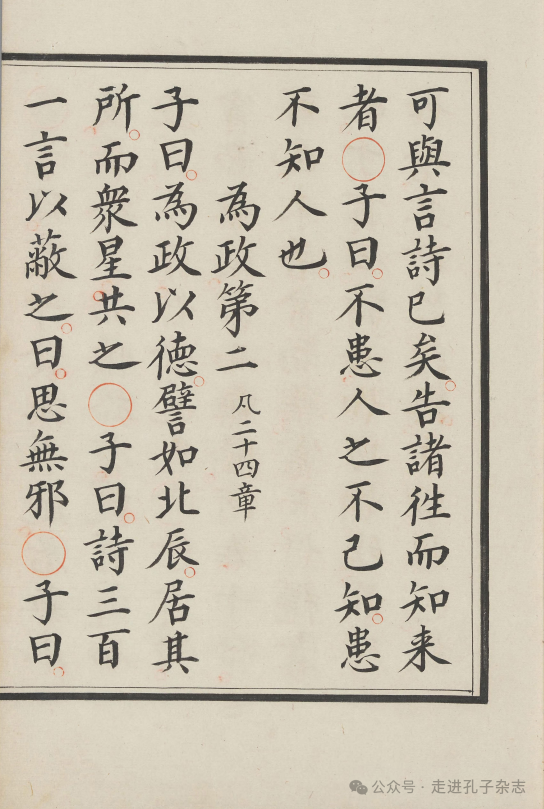 可與言詩已矣告諸徃而知来
者○子曰不患人之不己知患
不知人也
為政第二 凡二十四章
子曰為政以德譬如北辰居其
所而衆星共之○子曰詩三百
一言以蔽之曰思無邪○子曰
公众号·走进孔子杂志